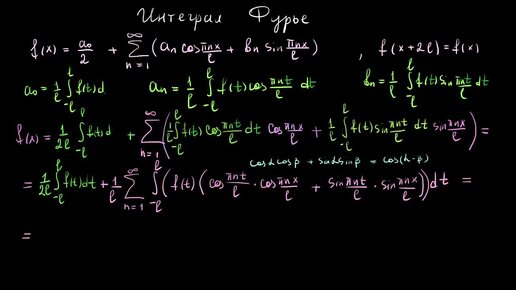 Интеграл Фурье
f(x) = a₀/2 + ∑_{n=1}^{∞} (aₙ cos πnx/ℓ + bₙ sin πnx/ℓ) , f(x+2ℓ) = f(x)
a₀ = 1/ℓ ∫_{-ℓ}^{ℓ} f(t)d aₙ = 1/ℓ ∫_{-ℓ}^{ℓ} f(t) cos πnt/ℓ dt bₙ = 1/ℓ ∫_{-ℓ}^{ℓ} f(t) sin πnt/ℓ dt
f(x) = 1/2ℓ ∫_{-ℓ}^{ℓ} f(t)d + ∑_{n=1}^{∞} (1/ℓ ∫_{-ℓ}^{ℓ} f(t) cos πnt/ℓ dt cos πnx/ℓ + 1/ℓ ∫_{-ℓ}^{ℓ} f(t) sin πnt/ℓ dt sin πnx/ℓ) =
cosα cosβ + sinα sinβ = cos(α-β)
= 1/2ℓ ∫_{-ℓ}^{ℓ} f(t)dt + 1/ℓ ∑_{n=1}^{∞} ∫_{-ℓ}^{ℓ} (f(t) (cos πnt/ℓ · cos πnx/ℓ + sin πnt/ℓ · sin πnx/ℓ)) dt =
=